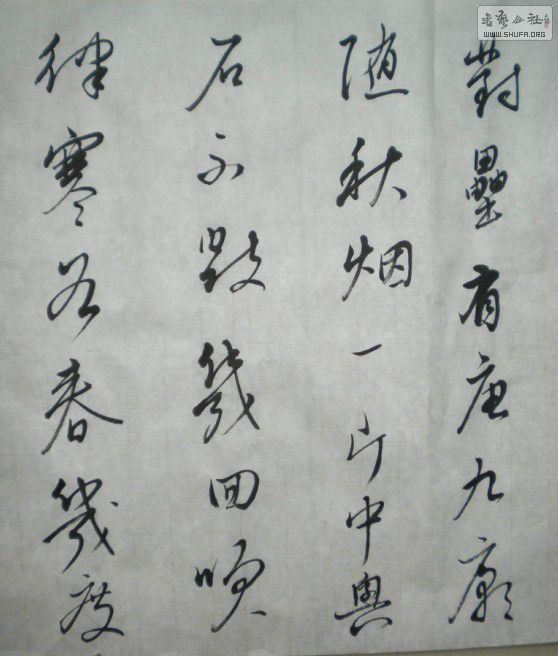 對壘有唐九廟
随秋烟一片中興
石不毁幾回嗅
律寒谷春幾度
書藝公社
WWW.SHUFA.ORG